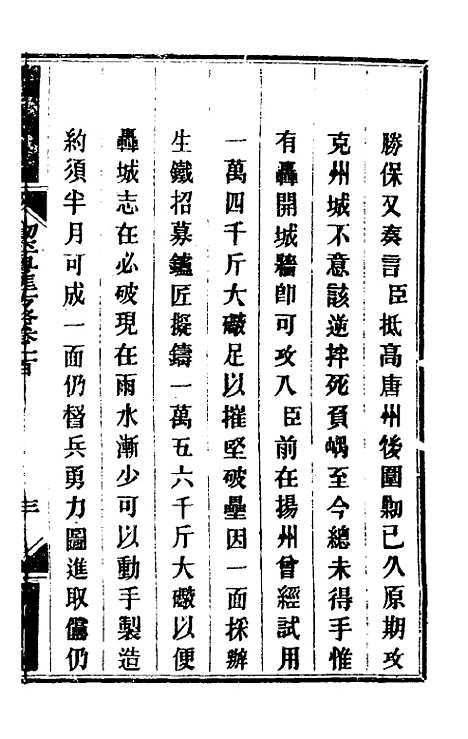 勝保又奏言臣抵高唐州後圍勦已久原期攻
克州城不意該逆拌死負嵎至今總未得手惟
有轟開城牆卽可攻入臣前在揚州曾經試用
一萬四千斤大礮足以摧堅破壘因一面採辦
生鐵招募鑪匠擬鑄一萬五六千斤大礮以便
轟城志在必破現在雨水漸少可以動手製造
約須半月可成一面仍督兵勇力圖進取儻仍